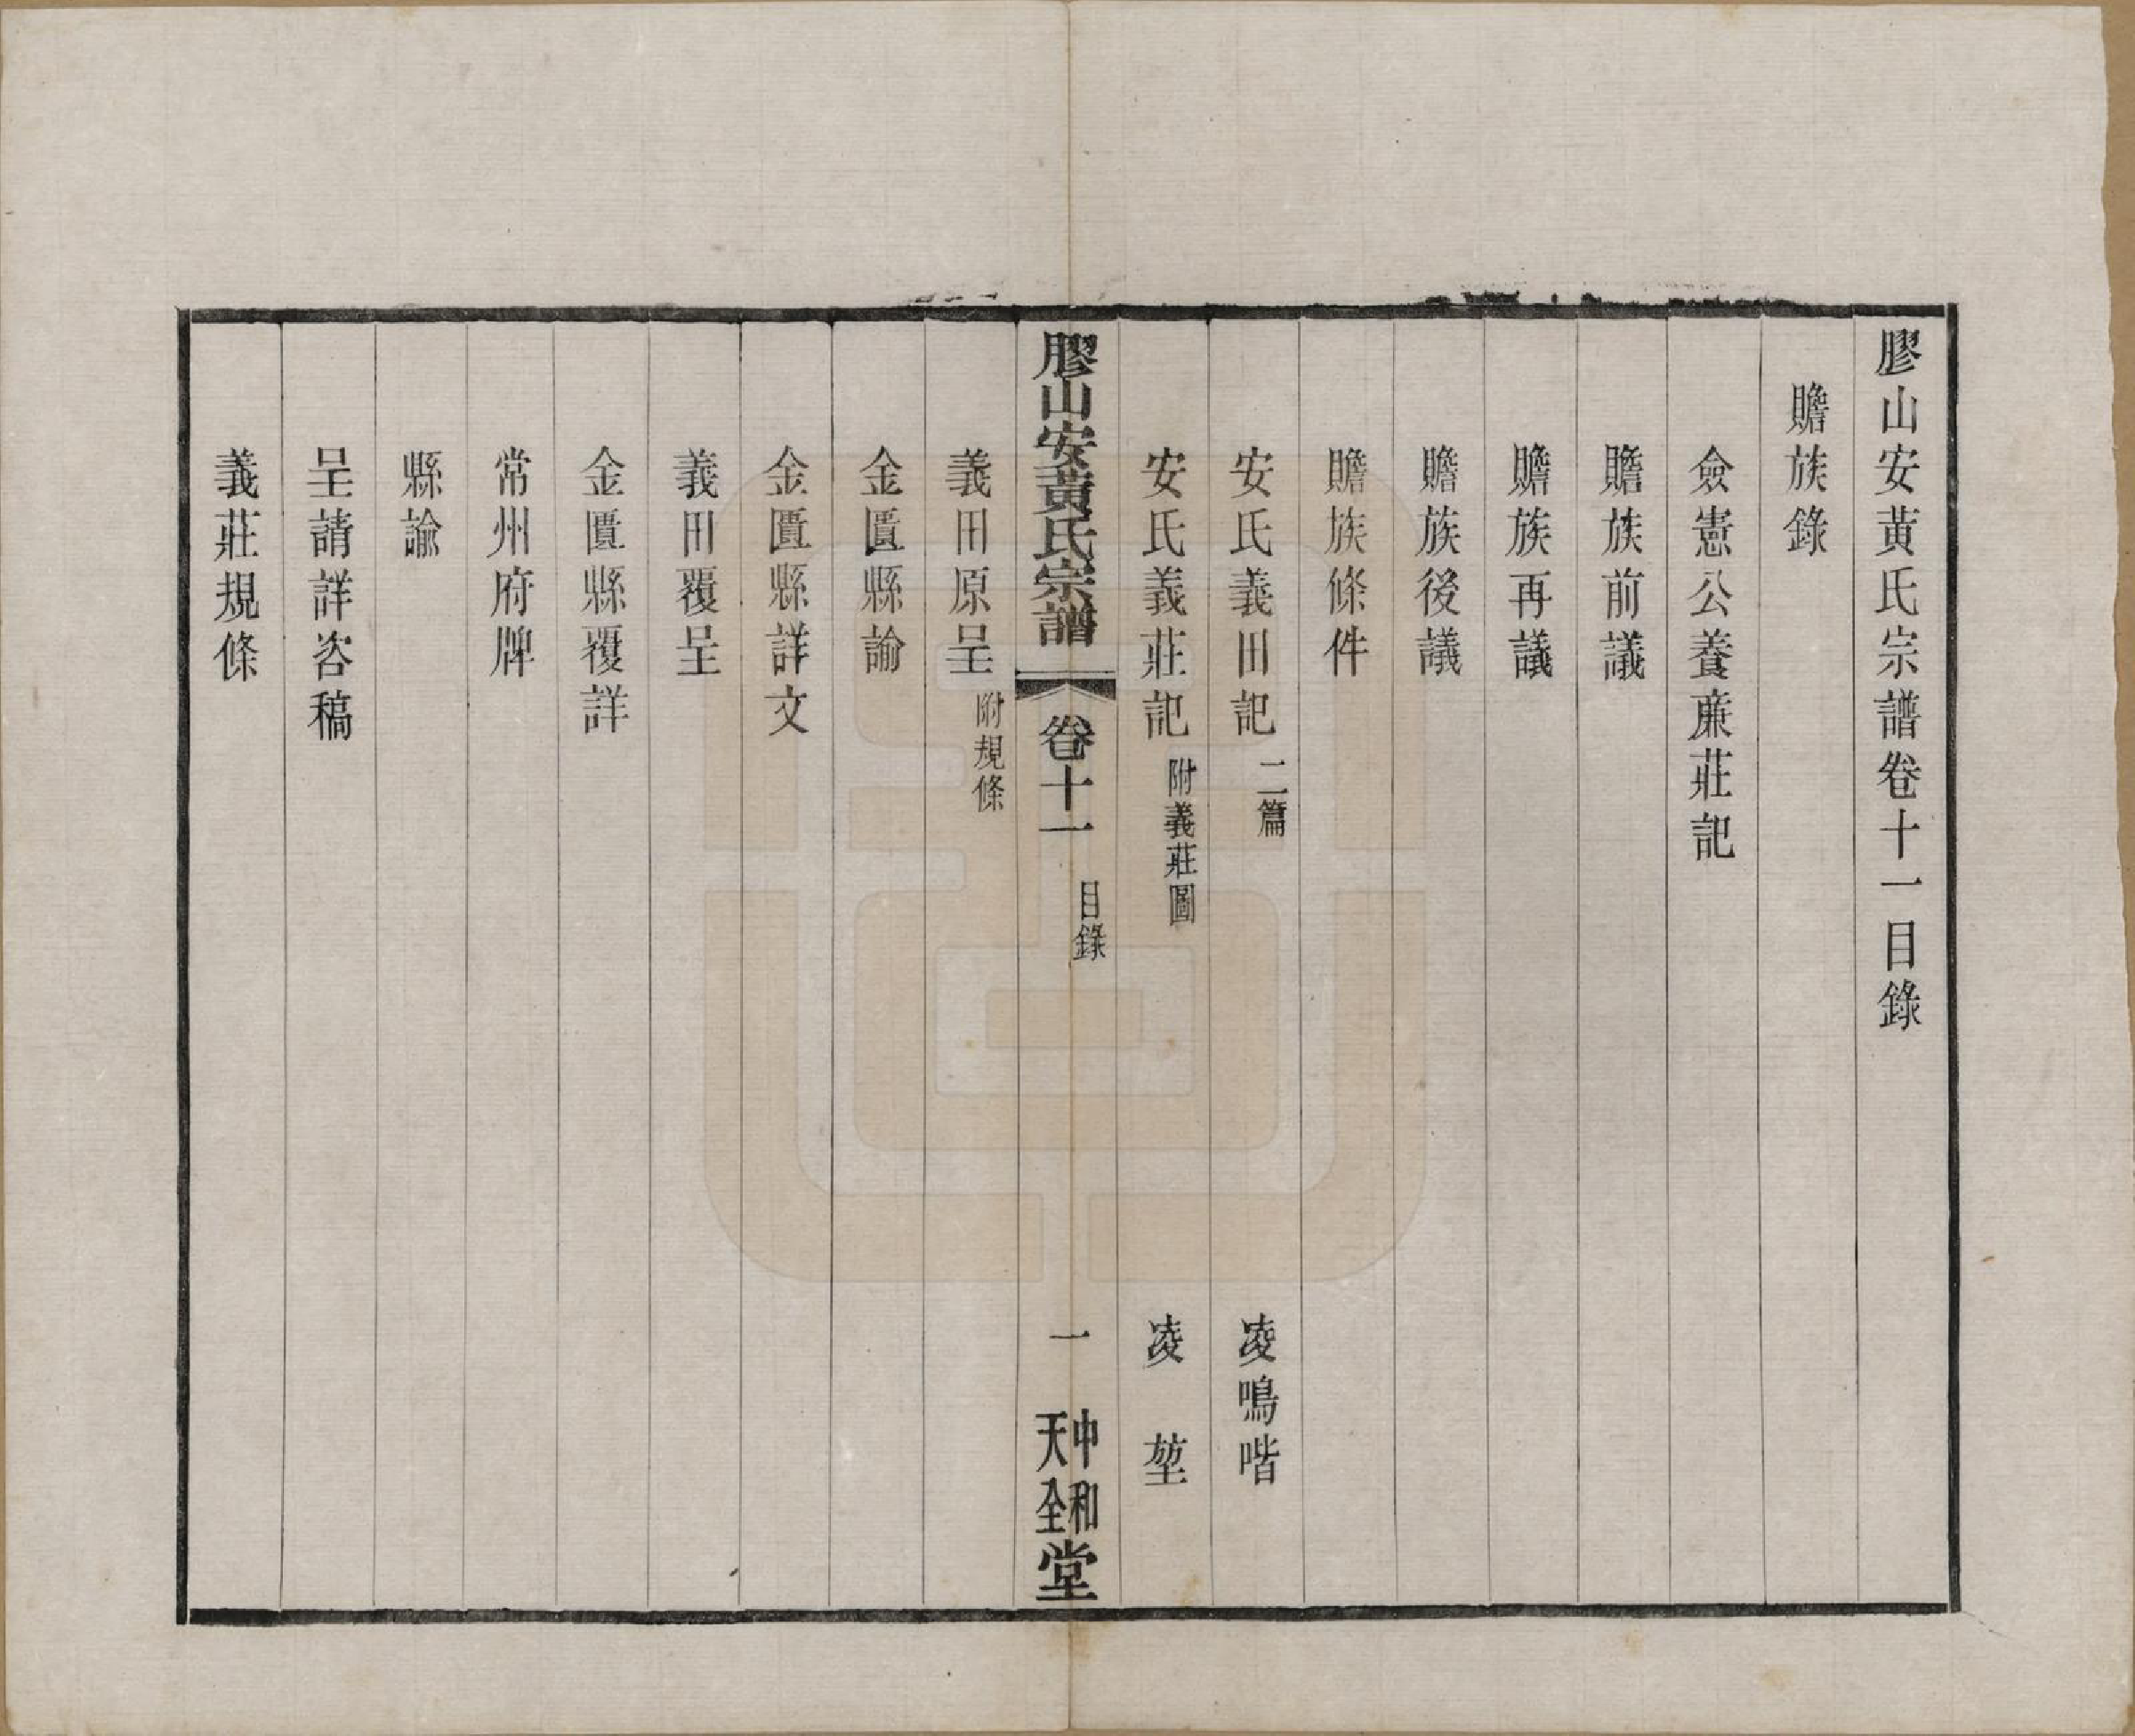 膠山安黃氏宗譜卷十一目錄
贍族錄
僉憲公養廉莊記
贍族前議
贍族再議
贍族後議
贍族條件
安氏義田記 二篇 凌鳴喈
安氏義莊記 附義莊圖 凌 堃
膠山安黃氏宗譜 卷十一 目錄 一 中和天全堂
義田原呈 附規條
金匱縣諭
金匱縣詳文
義田覆呈
金匱縣覆詳
常州府牌
縣諭
呈請詳咨稿
義莊規條